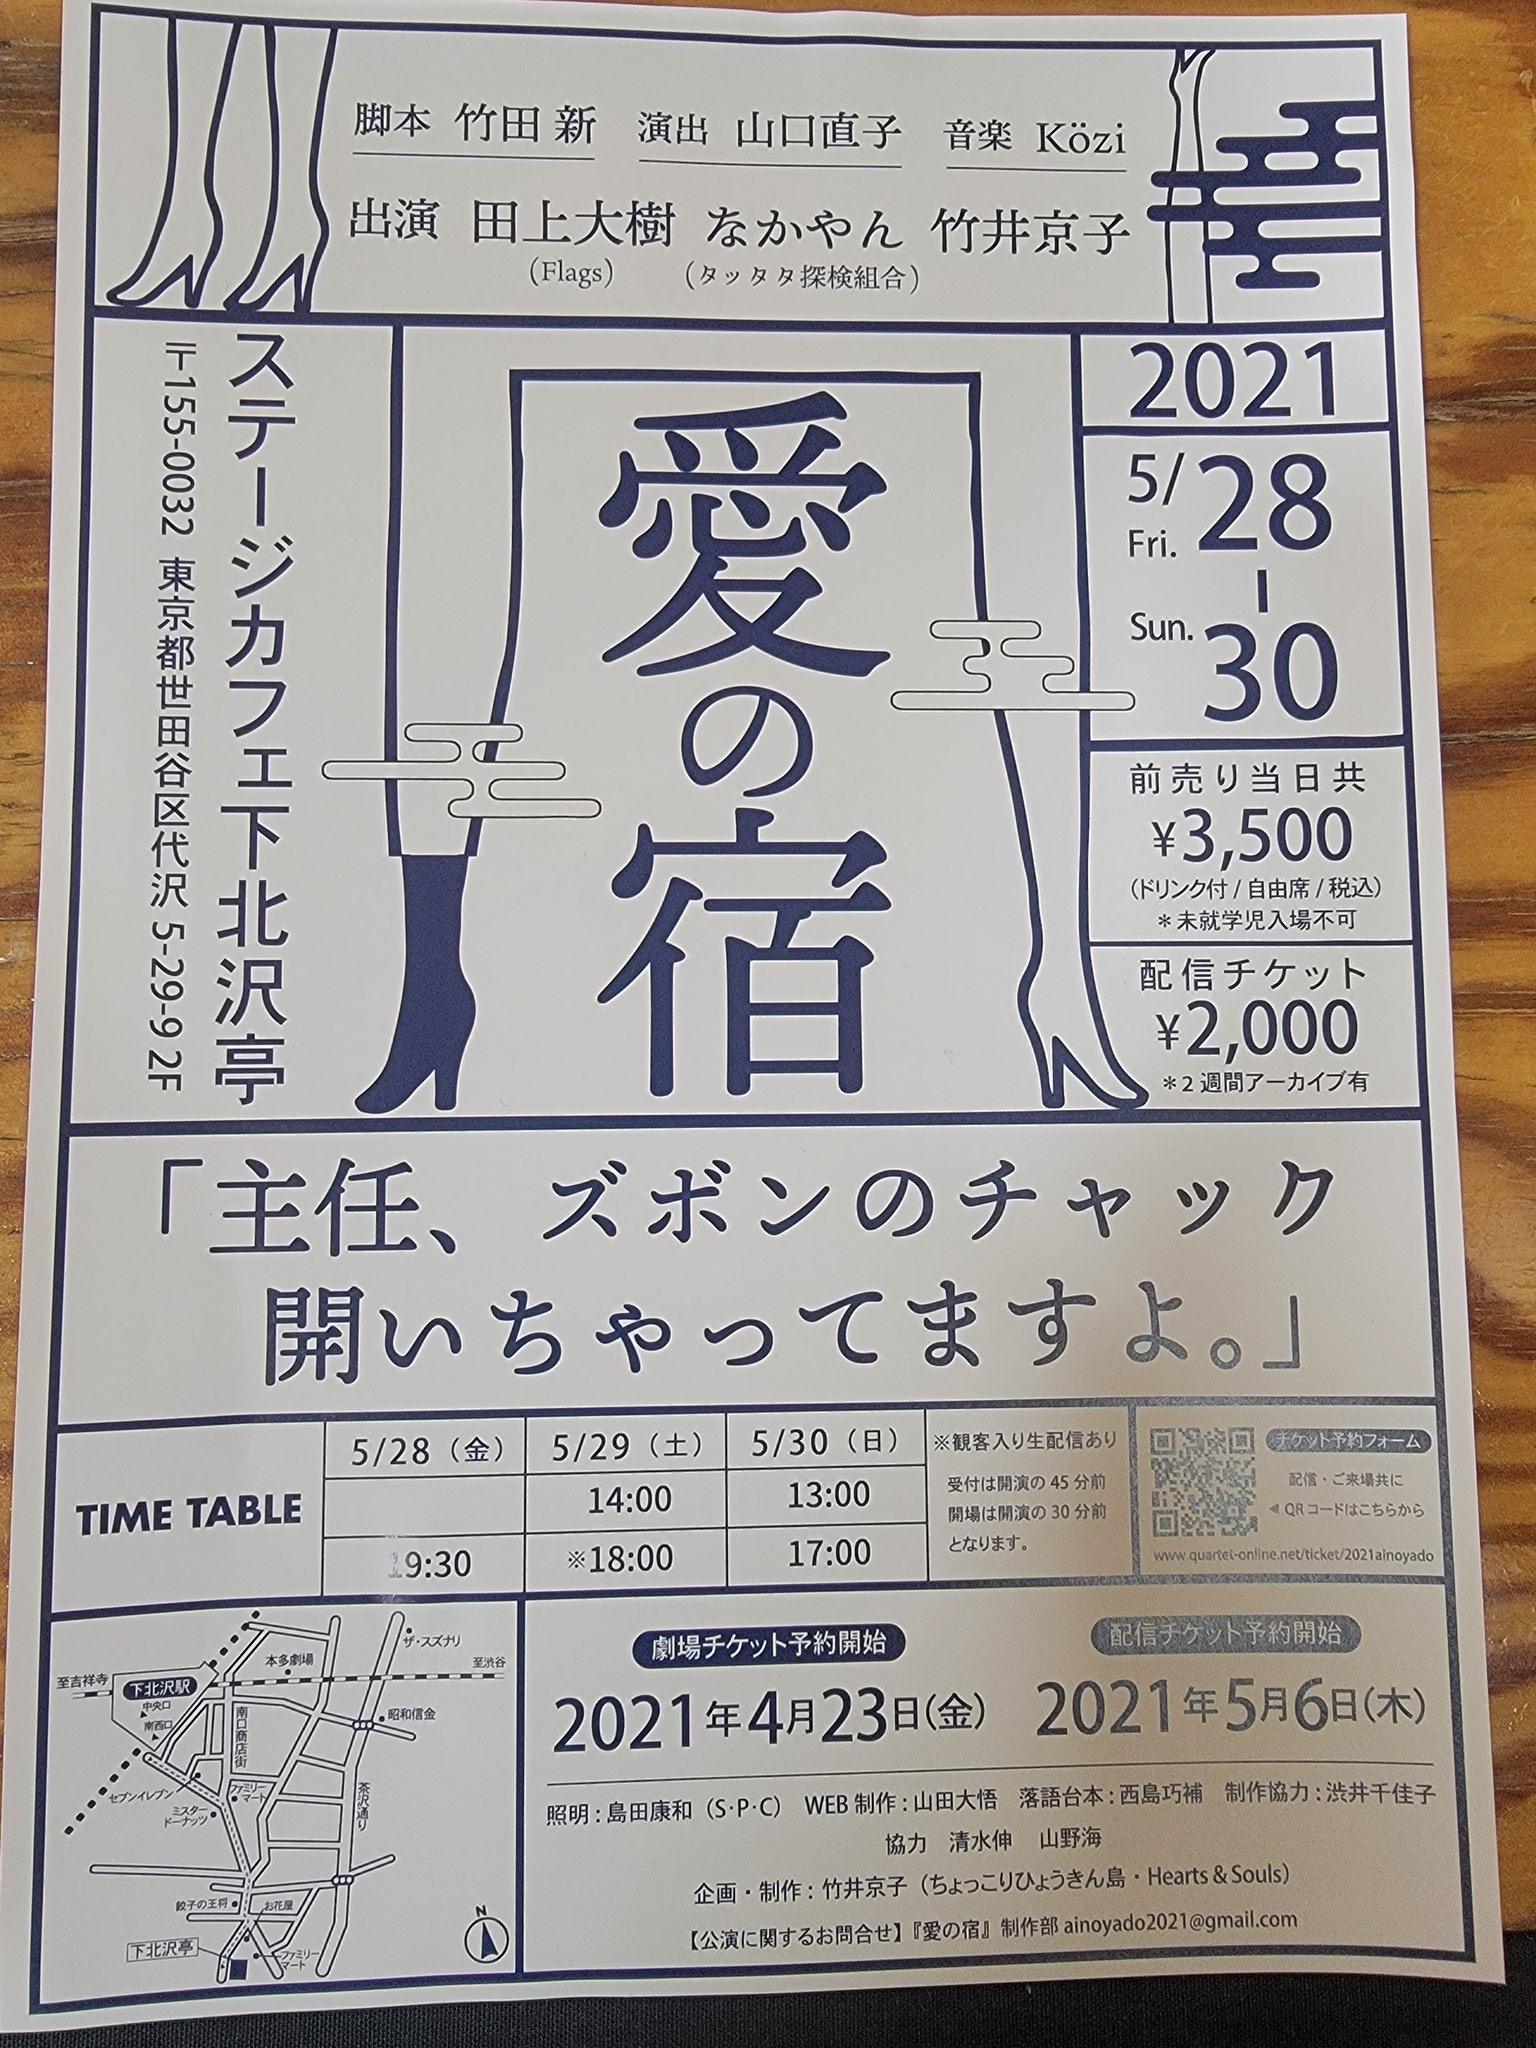 脚本 竹田 新 演出 山口直子 音楽 Közi
出演 田上大樹 なかやん 竹井京子
(Flags) (タッタタ探検組合)
ステージカフェ下北沢亭
〒155-0032 東京都世田谷区代沢 5-29-9 2F
愛の宿
2021
5/28
Fri.
-
Sun.
30
前売り当日共
¥3,500
(ドリンク付 / 自由席 / 税込)
＊未就学児入場不可
配信チケット
¥2,000
＊2 週間アーカイブ有
「主任、ズボンのチャック
開いちゃってますよ。」
TIME TABLE
5/28（金） 5/29（土） 5/30（日）
14:00 13:00
19:30 ※18:00 17:00
※観客入り生配信あり
受付は開演の 45 分前
開場は開演の 30 分前
となります。
チケット予約フォーム
配信・ご来場共に
◀ QRコードはこちらから
www.quartet-online.net/ticket/2021ainoyado
ザ・スズナリ
本多劇場
至吉祥寺
至渋谷
下北沢駅
中央口
南西口
昭和信金
南口商店街
セブンイレブン
ファミリーマート
ミスタードーナッツ
茶沢通り
餃子の王将
お花屋
下北沢亭
ファミリーマート
N
劇場チケット予約開始
2021年4月23日(金)
配信チケット予約開始
2021年5月6日(木)
照明 : 島田康和（S･P･C） WEB 制作 : 山田大悟 落語台本 : 西島巧補 制作協力 : 渋井千佳子
協力 清水伸 山野海
企画・制作 : 竹井京子（ちょっこりひょうきん島・Hearts & Souls）
【公演に関するお問合せ】『愛の宿』制作部 ainoyado2021@gmail.com